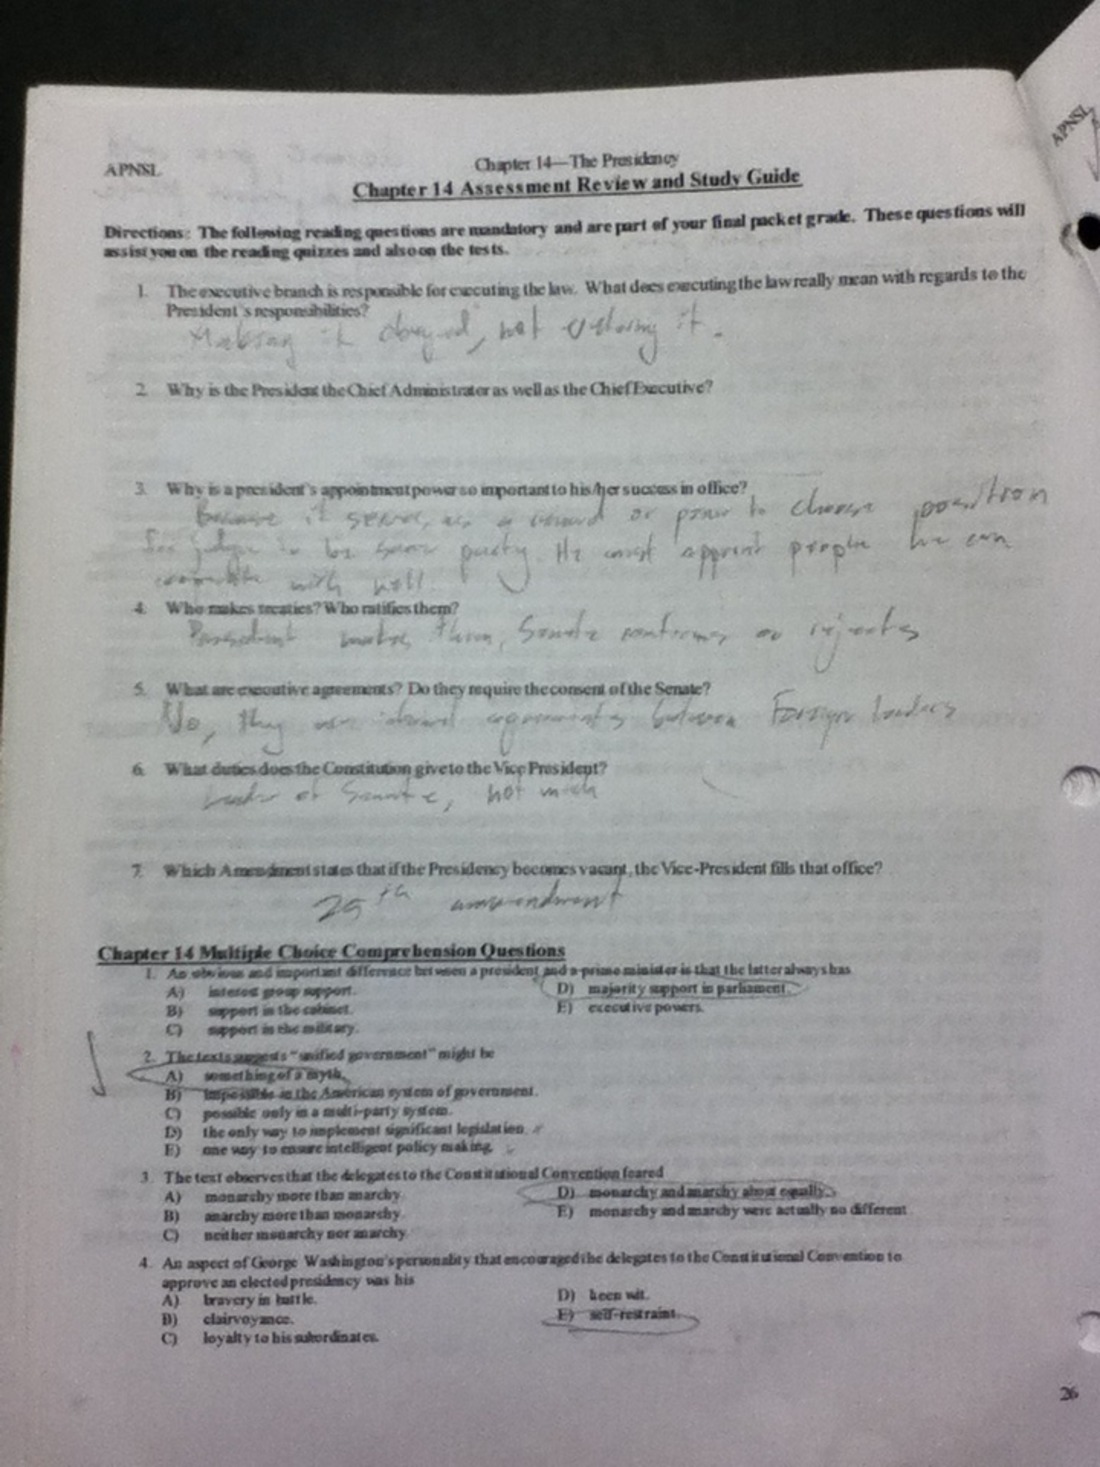 APNSL
APNSL
Chapter 14—The Presidency
Chapter 14 Assessment Review and Study Guide
Directions: The following reading questions are mandatory and are part of your final packet grade. These questions will
assist you on the reading quizzes and also on the tests.
1. The executive branch is responsible for executing the law. What does executing the law really mean with regards to the
President's responsibilities?
Making it obeyed, not ordering it.
2. Why is the President the Chief Administrator as well as the Chief Executive?
3. Why is a president's appointment power so important to his/her success in office?
Because it serves as a reward or power to choose position
for judges to be same party. He must appoint people he can
with well.
4. Who makes treaties? Who ratifies them?
President makes them, Senate confirms or rejects
5. What are executive agreements? Do they require the consent of the Senate?
No, they are agreements between Foreign leaders
6. What duties does the Constitution give to the Vice President?
Leader of Senate, not much
7. Which Amendment states that if the Presidency becomes vacant, the Vice-President fills that office?
25th ammendment
Chapter 14 Multiple Choice Comprehension Questions
1. An obvious and important difference between a president and a prime minister is that the latter always has
A) interest group support.
D) majority support in parliament.
B) support in the cabinet.
E) executive powers.
C) support in the military.
2. The texts suggests "unified government" might be
A) something of a myth.
B) impossible in the American system of government.
C) possible only in a multi-party system.
D) the only way to implement significant legislation.
E) one way to ensure intelligent policy making.
3. The text observes that the delegates to the Constitutional Convention feared
A) monarchy more than anarchy.
D) monarchy and anarchy about equally.
B) anarchy more than monarchy.
E) monarchy and anarchy were actually no different
C) neither monarchy nor anarchy.
4. An aspect of George Washington's personality that encouraged the delegates to the Constitutional Convention to
approve an elected presidency was his
A) bravery in battle.
D) keen wit.
B) clairvoyance.
E) self-restraint.
C) loyalty to his subordinates.
26